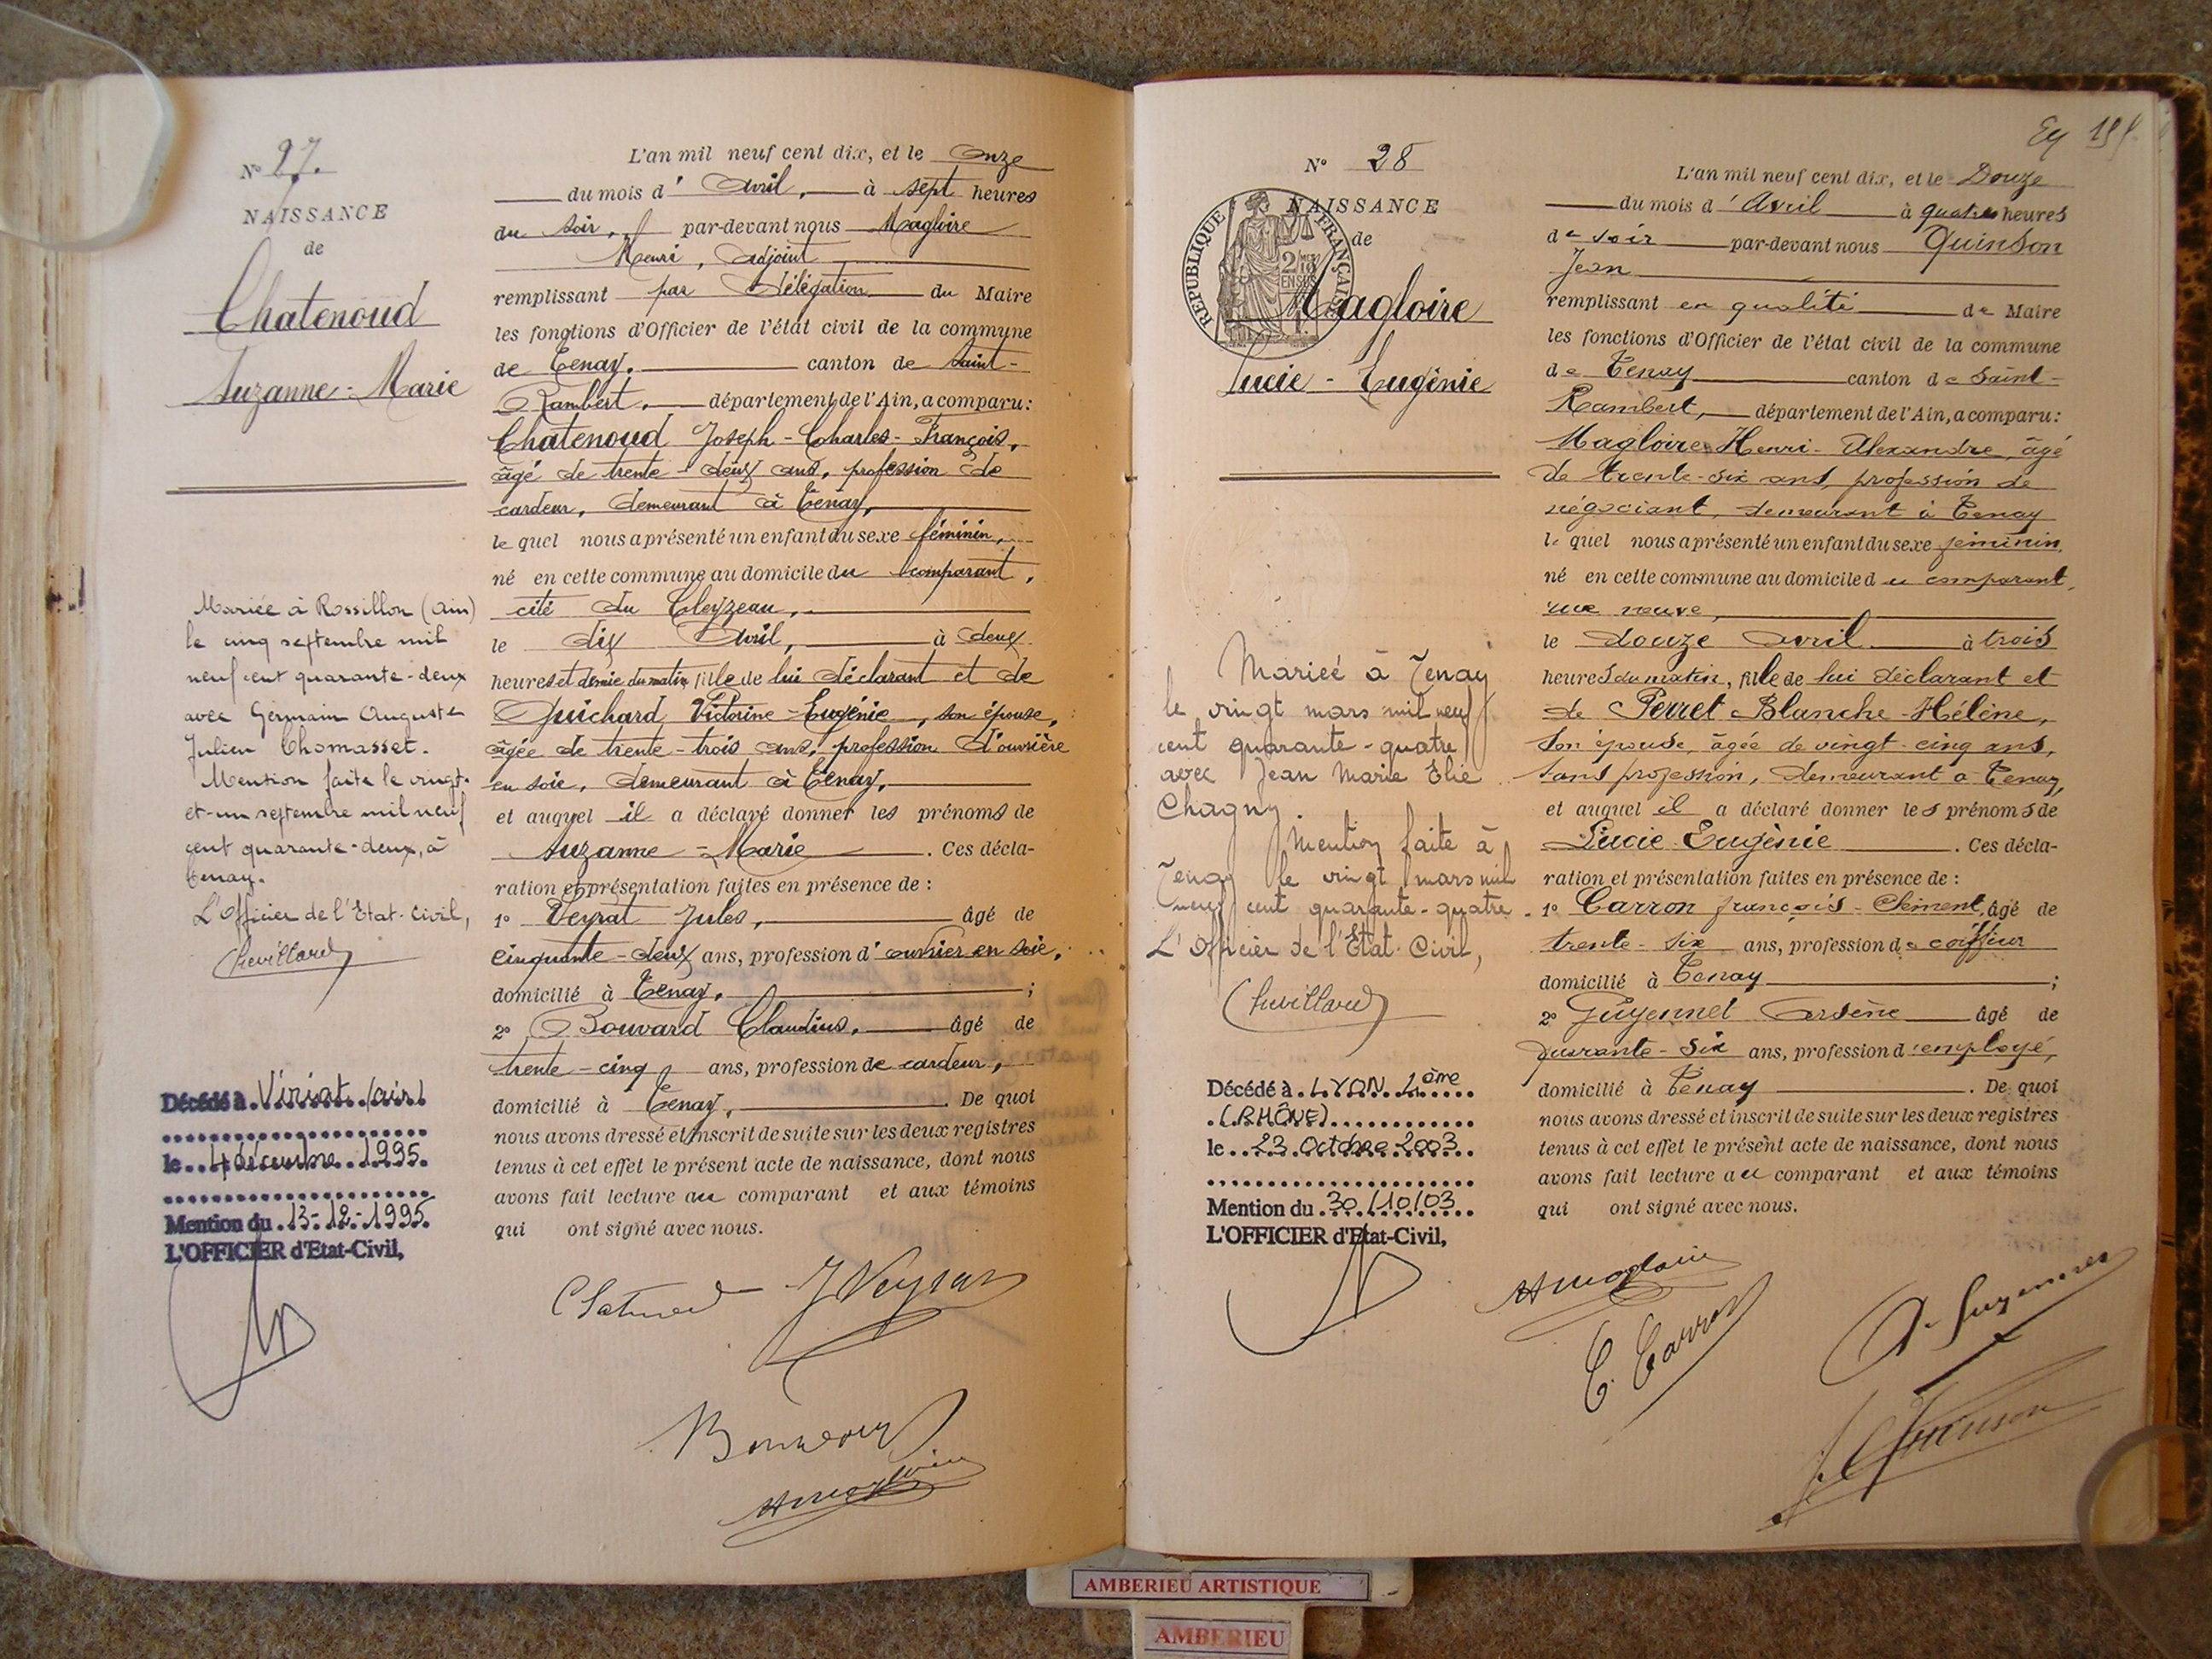 N° 27.
NAISSANCE
de
Chatenoud
Suzanne-Marie
Mariée à Rossillon (Ain)
le cinq septembre mil
neuf cent quarante-deux
avec Germain Auguste
Julien Thomasset.
Mention faite le vingt-
et-un septembre mil neuf
cent quarante-deux, à
Tenay.
L'Officier de l'Etat-Civil,
Chevillard
Décédé à Viriat (ain)
le 4 décembre 1995.
Mention du 13-12-1995.
L'OFFICIER d'Etat-Civil,
L'an mil neuf cent dix, et le onze
du mois d'Avril, à sept heures
du soir, par-devant nous Magloire
Henri, Adjoint
remplissant par Délégation du Maire
les fonctions d'Officier de l'état civil de la commune
de Tenay. canton de Saint-
Rambert, département de l'Ain, a comparu:
Chatenoud Joseph-Charles-François,
âgé de trente-deux ans, profession de
cardeur, demeurant à Tenay,
le quel nous a présenté un enfant du sexe féminin,
né en cette commune au domicile du comparant,
cité du Cleyzeau,
le dix Avril, à deux
heures et demie du matin, fille de lui déclarant et de
Guichard Victorine-Eugénie, son épouse,
âgée de trente-trois ans, profession d'ouvrière
en soie, demeurant à Tenay,
et auquel il a déclaré donner les prénoms de
Suzanne-Marie. Ces décla-
ration et présentation faites en présence de :
1° Veyrat Jules, âgé de
cinquante-deux ans, profession d'ouvrier en soie,
domicilié à Tenay, ;
2° Bouvard Claudius, âgé de
trente-cinq ans, profession de cardeur,
domicilié à Tenay, . De quoi
nous avons dressé et inscrit de suite sur les deux registres
tenus à cet effet le présent acte de naissance, dont nous
avons fait lecture au comparant et aux témoins
qui ont signé avec nous.
Chatenoud J Veyrat
Bouvard
H Magloire
N° 28
NAISSANCE
de
REPUBLIQUE FRANÇAISE
Magloire
Lucie-Eugénie
Mariée à Tenay
le vingt mars mil neuf
cent quarante-quatre
avec Jean Marie Elie
Chagny
Mention faite à
Tenay le vingt mars mil
neuf cent quarante-quatre.
L'Officier de l'Etat-Civil,
Chevillard
Décédé à LYON 4ème
(RHÔNE)
le 23 Octobre 2003
Mention du 30/10/03
L'OFFICIER d'Etat-Civil,
L'an mil neuf cent dix, et le Douze
du mois d'Avril à quatre heures
de soir par-devant nous Quinson
Jean
remplissant en qualité de Maire
les fonctions d'Officier de l'état civil de la commune
de Tenay canton de Saint-
Rambert, département de l'Ain, a comparu:
Magloire Henri-Alexandre, âgé
de trente-six ans, profession de
négociant, demeurant à Tenay
le quel nous a présenté un enfant du sexe féminin,
né en cette commune au domicile du comparant,
rue neuve,
le douze avril à trois
heures du matin, fille de lui déclarant et
de Perret Blanche-Hélène,
son épouse, âgée de vingt-cinq ans,
sans profession, demeurant à Tenay,
et auquel il a déclaré donner les prénoms de
Lucie Eugénie. Ces décla-
ration et présentation faites en présence de :
1° Carron françois-Clément, âgé de
trente-six ans, profession de coiffeur
domicilié à Tenay ;
2° Guyennet Arsène âgé de
quarante-six ans, profession d'employé,
domicilié à Tenay . De quoi
nous avons dressé et inscrit de suite sur les deux registres
tenus à cet effet le présent acte de naissance, dont nous
avons fait lecture au comparant et aux témoins
qui ont signé avec nous.
H Magloire
C. Carron
A. Guyennet
J. Quinson
AMBERIEU ARTISTIQUE
AMBERIEU